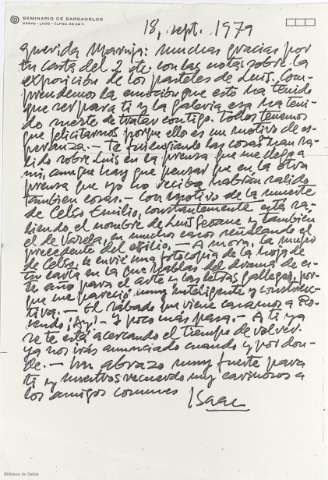 SEMINARIO DE SARGADELOS
18, sept. 1979
Querida Maruja: muchas gracias por
tu carta del 2 de con las notas sobre la
exposición de los pasteles de Luis. Com-
prendemos la emoción que esto ha tenido
que ser para ti y la galería esa ha teni-
do suerte de tratar contigo. Todos tenemos
que felicitarnos porque ello es un motivo de es-
peranza. — Te fui enviando las cosas que han sa-
lido sobre Luis en la prensa que me llega a
mi, aunque hay que pensar que en la otra
prensa que yo no recibo habrán salido
también cosas. — Con motivo de la muerte
de Celso Emilio, constantemente está sa-
liendo el nombre de Luis Seoane y también
el de Varela en muchos casos señalando el
precedente del exilio. — A Mora, la mujer
de Celso, le envié una fotocopia de la hoja de
tu carta en la que hablas del drama de es-
te año para el arte y las letras gallegas, por-
que me pareció muy inteligente y construc-
tiva. — El sábado que viene casamos a Ro-
sendo ¡Ay! — Y poco más pasa. — A ti ya
se te está acercando el tiempo de volver.
ya nos irás anunciando cuando y por don-
de. — Un abrazo muy fuerte para
ti y nuestros recuerdos muy cariñosos a
los amigos comunes
Isaac
Biblioteca de Galicia